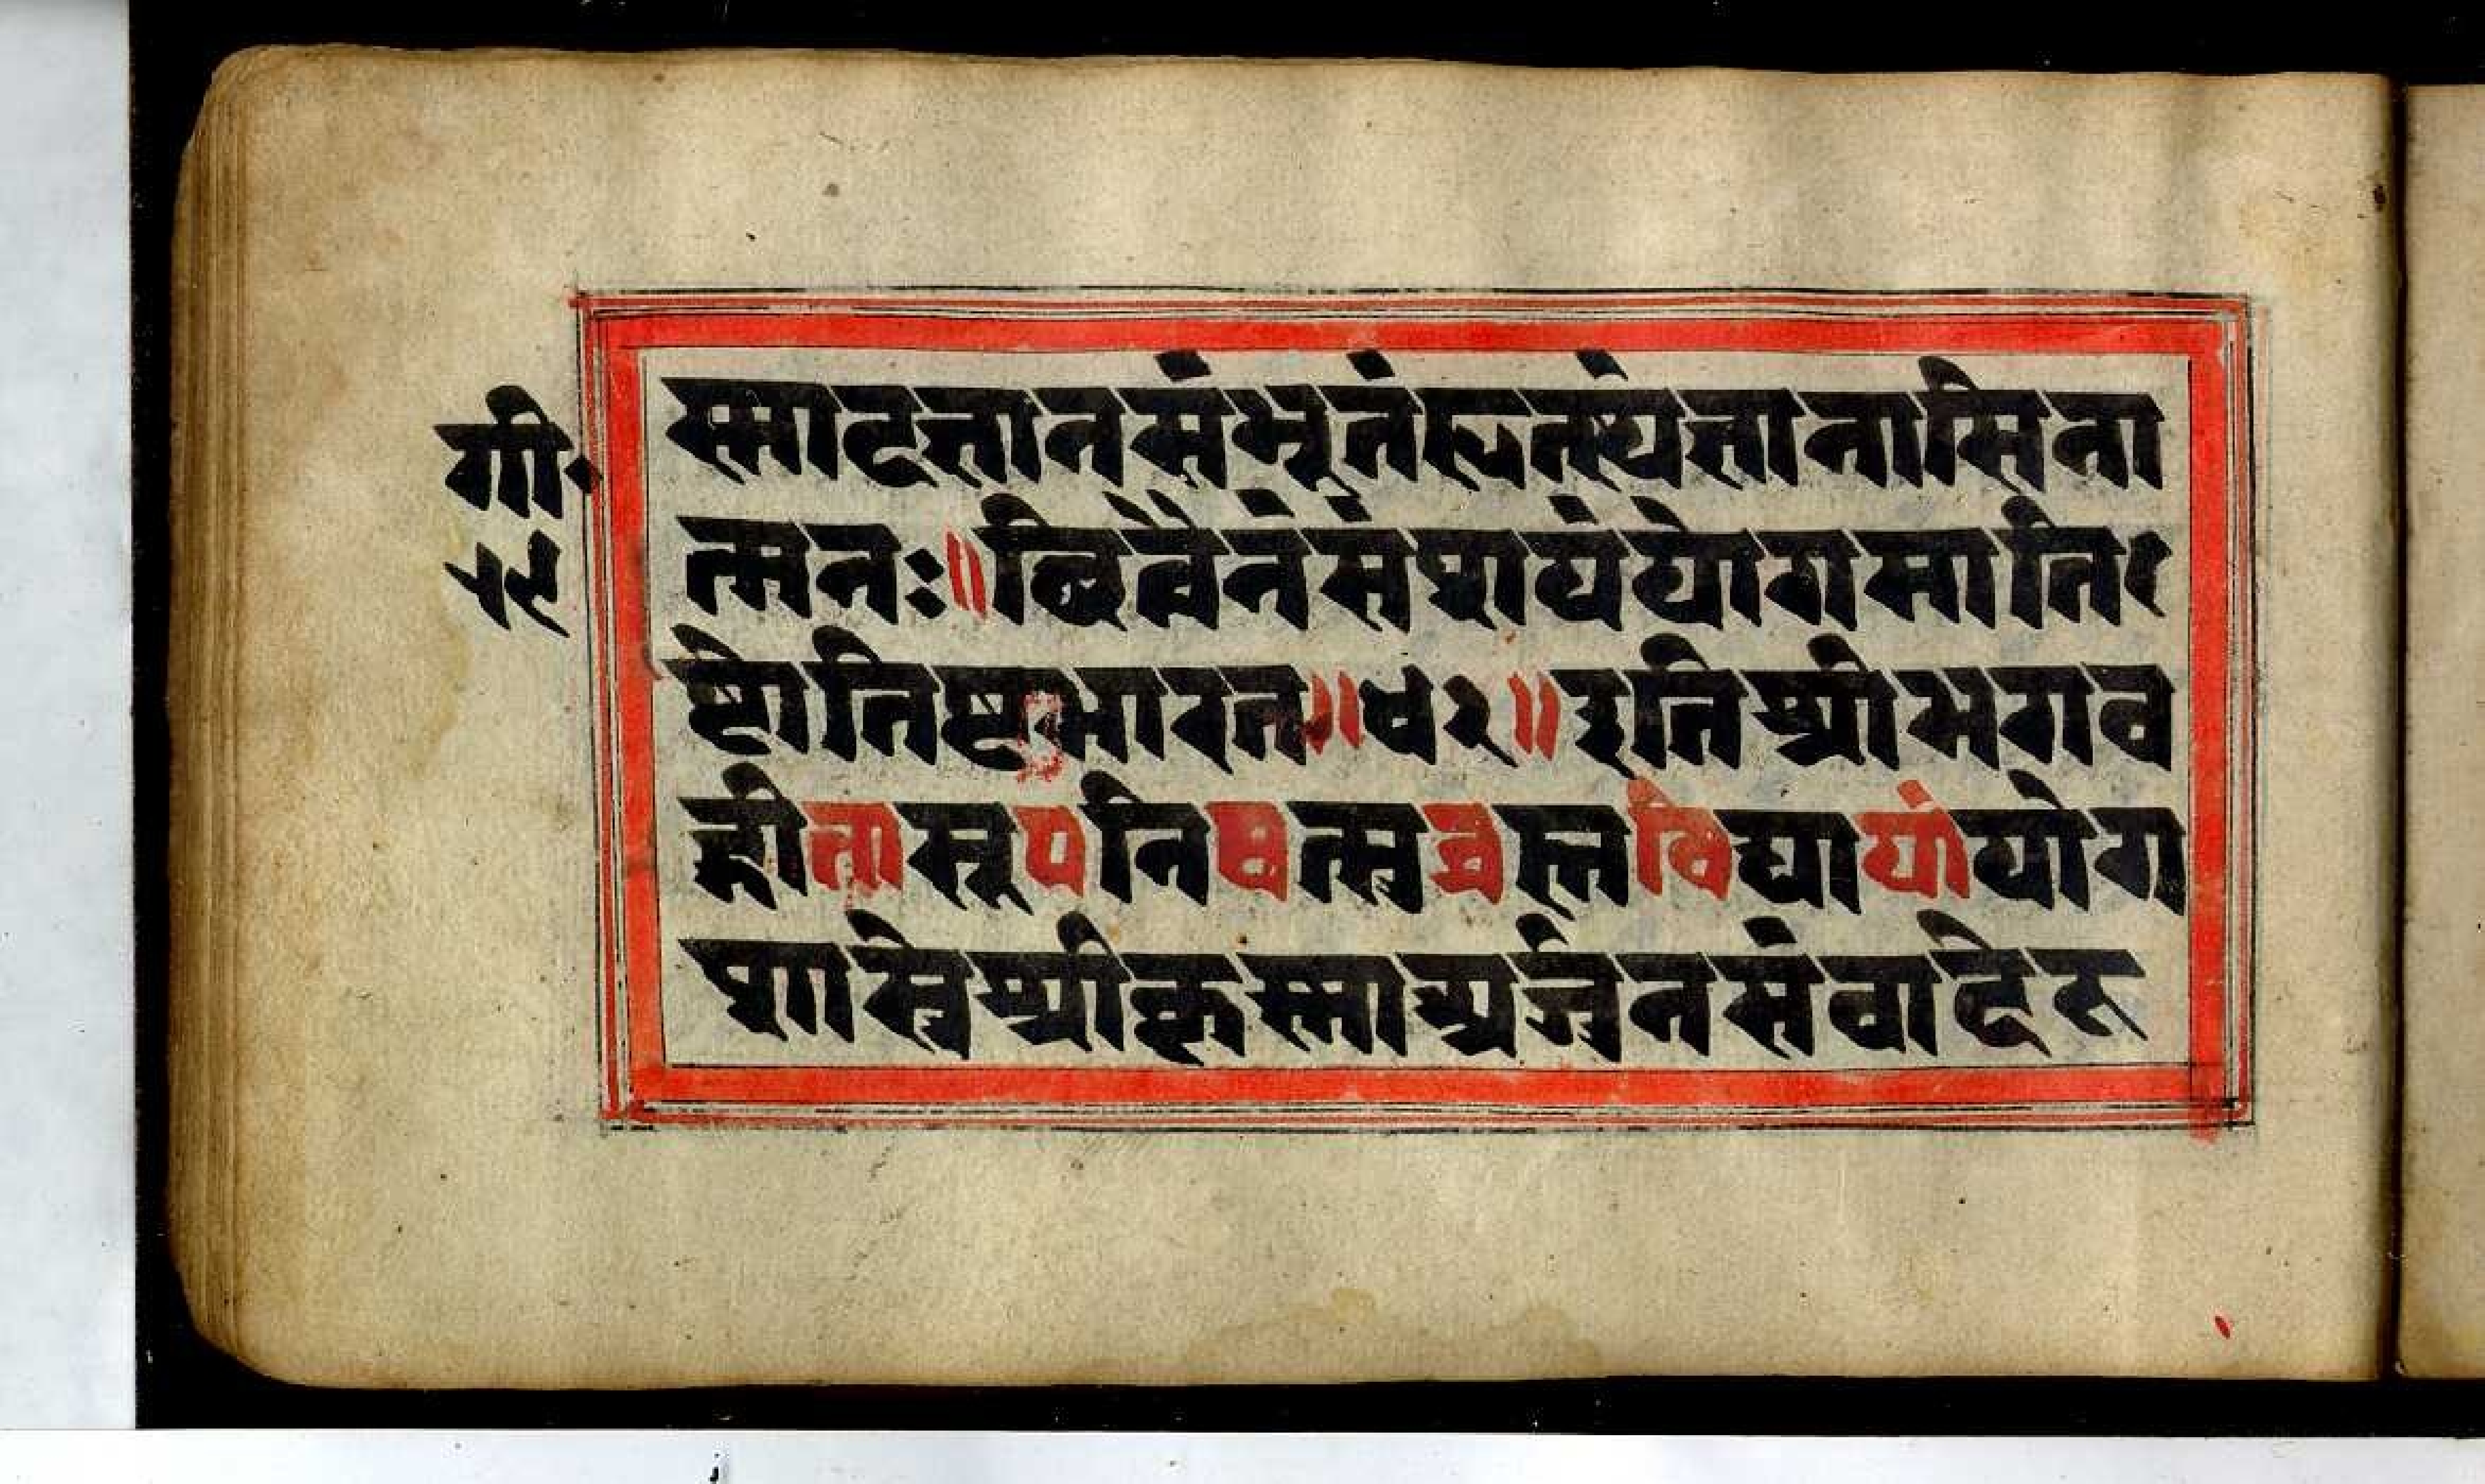 गी॰
५९
स्माद्ज्ञानसंभूतंहृत्स्थंज्ञानासिना
त्मनः॥छित्वैनंसंशयंयोगमाति१
ष्टोतिष्टभारत॥४२॥इतिश्रीभगव
द्गीतासूपनिषत्सुब्रह्मविद्यायांयोग
शास्त्रेश्रीकृस्मार्जुनसंवादेरु